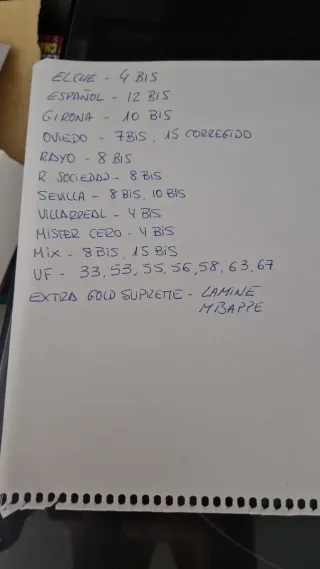 ELCHE - 4 BIS
ESPAÑOL - 12 BIS
GIRONA - 10 BIS
OVIEDO - 7BIS, 15 CORREGIDO
RAYO - 8 BIS
R SOCIEDAD - 8 BIS
SEVILLA - 8 BIS, 10 BIS
VILLARREAL - 4 BIS
MISTER CERO - 4 BIS
MIX - 8 BIS, 15 BIS
UF - 33, 53, 55, 56, 58, 63, 67
EXTRA GOLD SUPREME - LAMINE
MBAPPE